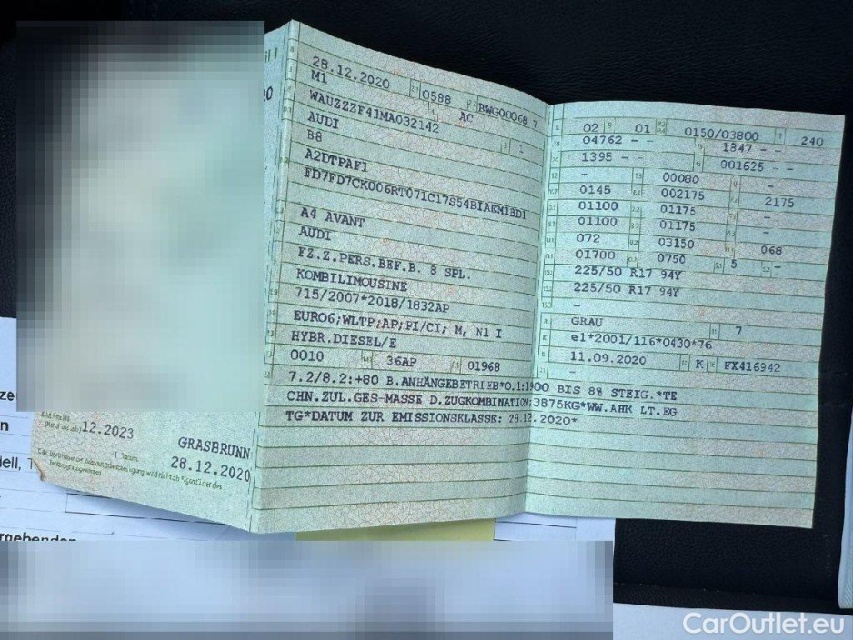 28.12.2020 0588 BWG00068 7
M1 AC
WAUZZZF41MA032142 1
AUDI
B8
A2DTPAF1
FD7FD7CK006RT071C17S54BIAEM1BDI
A4 AVANT
AUDI
FZ.Z.PERS.BEF.B. 8 SPL.
KOMBILIMOUSINE
715/2007*2018/1832AP
EURO6;WLTP;AP;PI/CI; M, N1 I
HYBR.DIESEL/E
0010 36AP 01968
7.2/8.2:+80 B.ANHÄNGEBETRIEB*O.1:1900 BIS 8% STEIG.*TE
CHN.ZUL.GES-MASSE D.ZUGKOMBINATION:3875KG*WW.AHK LT.EG
TG*DATUM ZUR EMISSIONSKLASSE: 28.12.2020*
02 01 0150/03800 240
04762 - - 1847 - -
1395 - - 001625 - -
- 00080 -
0145 002175 2175
01100 01175 -
01100 01175 -
072 03150 068
01700 0750 5 -
225/50 R17 94Y
225/50 R17 94Y
-
GRAU 7
e1*2001/116*0430*76
11.09.2020 K FX416942
-
12.2023
GRASBRUNN
28.12.2020
rgebenden
CarOutlet.eu